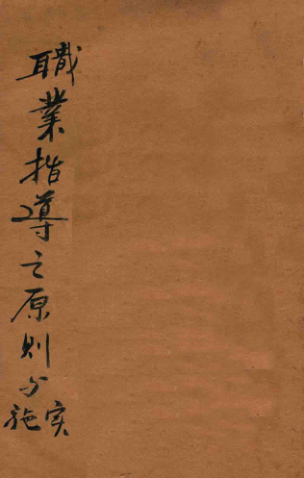 職業指導之原則与实施